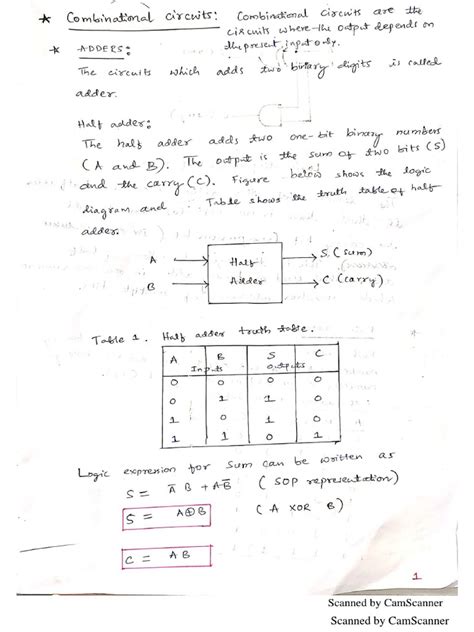 * Combinational circuits: Combinational circuits are the
circuits where the output depends on
the present input only.
* ADDERS:
The circuits which adds two binary digits is called
adder.
Half adder:
The half adder adds two one-bit binary numbers
(A and B). The output is the sum of two bits (S)
and the carry (C). Figure below shows the logic
diagram and Table shows the truth table of half
adder.
A
B
Half
Adder
S (sum)
C (carry)
Table 1. Half adder truth table.
A B S C
Inputs outputs
0 0 0 0
0 1 1 0
1 0 1 0
1 1 0 1
Logic expression for Sum can be written as
S = A̅ B + A B̅ (SOP representation)
S = A⊕B (A XOR B)
C = AB
1
Scanned by CamScanner
Scanned by CamScanner